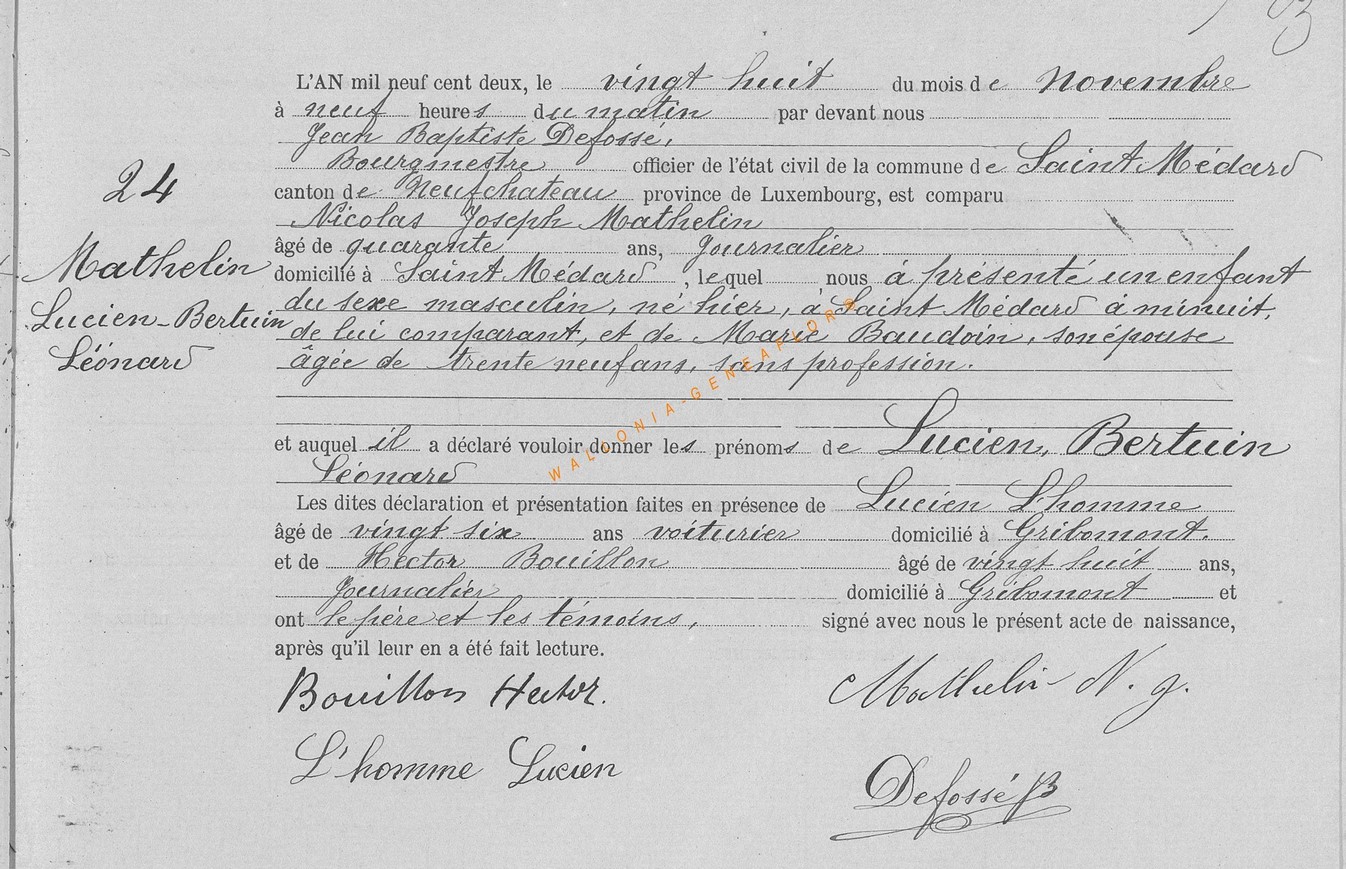 L'AN mil neuf cent deux, le vingt huit du mois de Novembre
à neuf heures du matin par devant nous
Jean Baptiste Defossé,
Bourgmestre officier de l'état civil de la commune de Saint Médard
canton de Neufchateau province de Luxembourg, est comparu
Nicolas Joseph Mathelin
âgé de quarante ans, Journalier
domicilié à Saint Médard, lequel nous à présenté un enfant
du sexe masculin, né hier, à Saint Médard à minuit,
de lui comparant, et de Marie Baudoin, son épouse
âgée de trente neuf ans, sans profession.
et auquel il a déclaré vouloir donner les prénoms de Lucien, Bertuin
Léonard
Les dites déclaration et présentation faites en présence de Lucien L'homme
âgé de vingt six ans voiturier domicilié à Gribomont.
et de Hector Bouillon âgé de vingt huit ans,
Journalier domicilié à Gribomont et
ont le père et les témoins, signé avec nous le présent acte de naissance,
après qu'il leur en a été fait lecture.
24
Mathelin
Lucien-Bertuin
Léonard
Bouillon Hector.
Mathelin N. j.
L'homme Lucien
Defossé JB
WALLONIA-GENEAFLORE